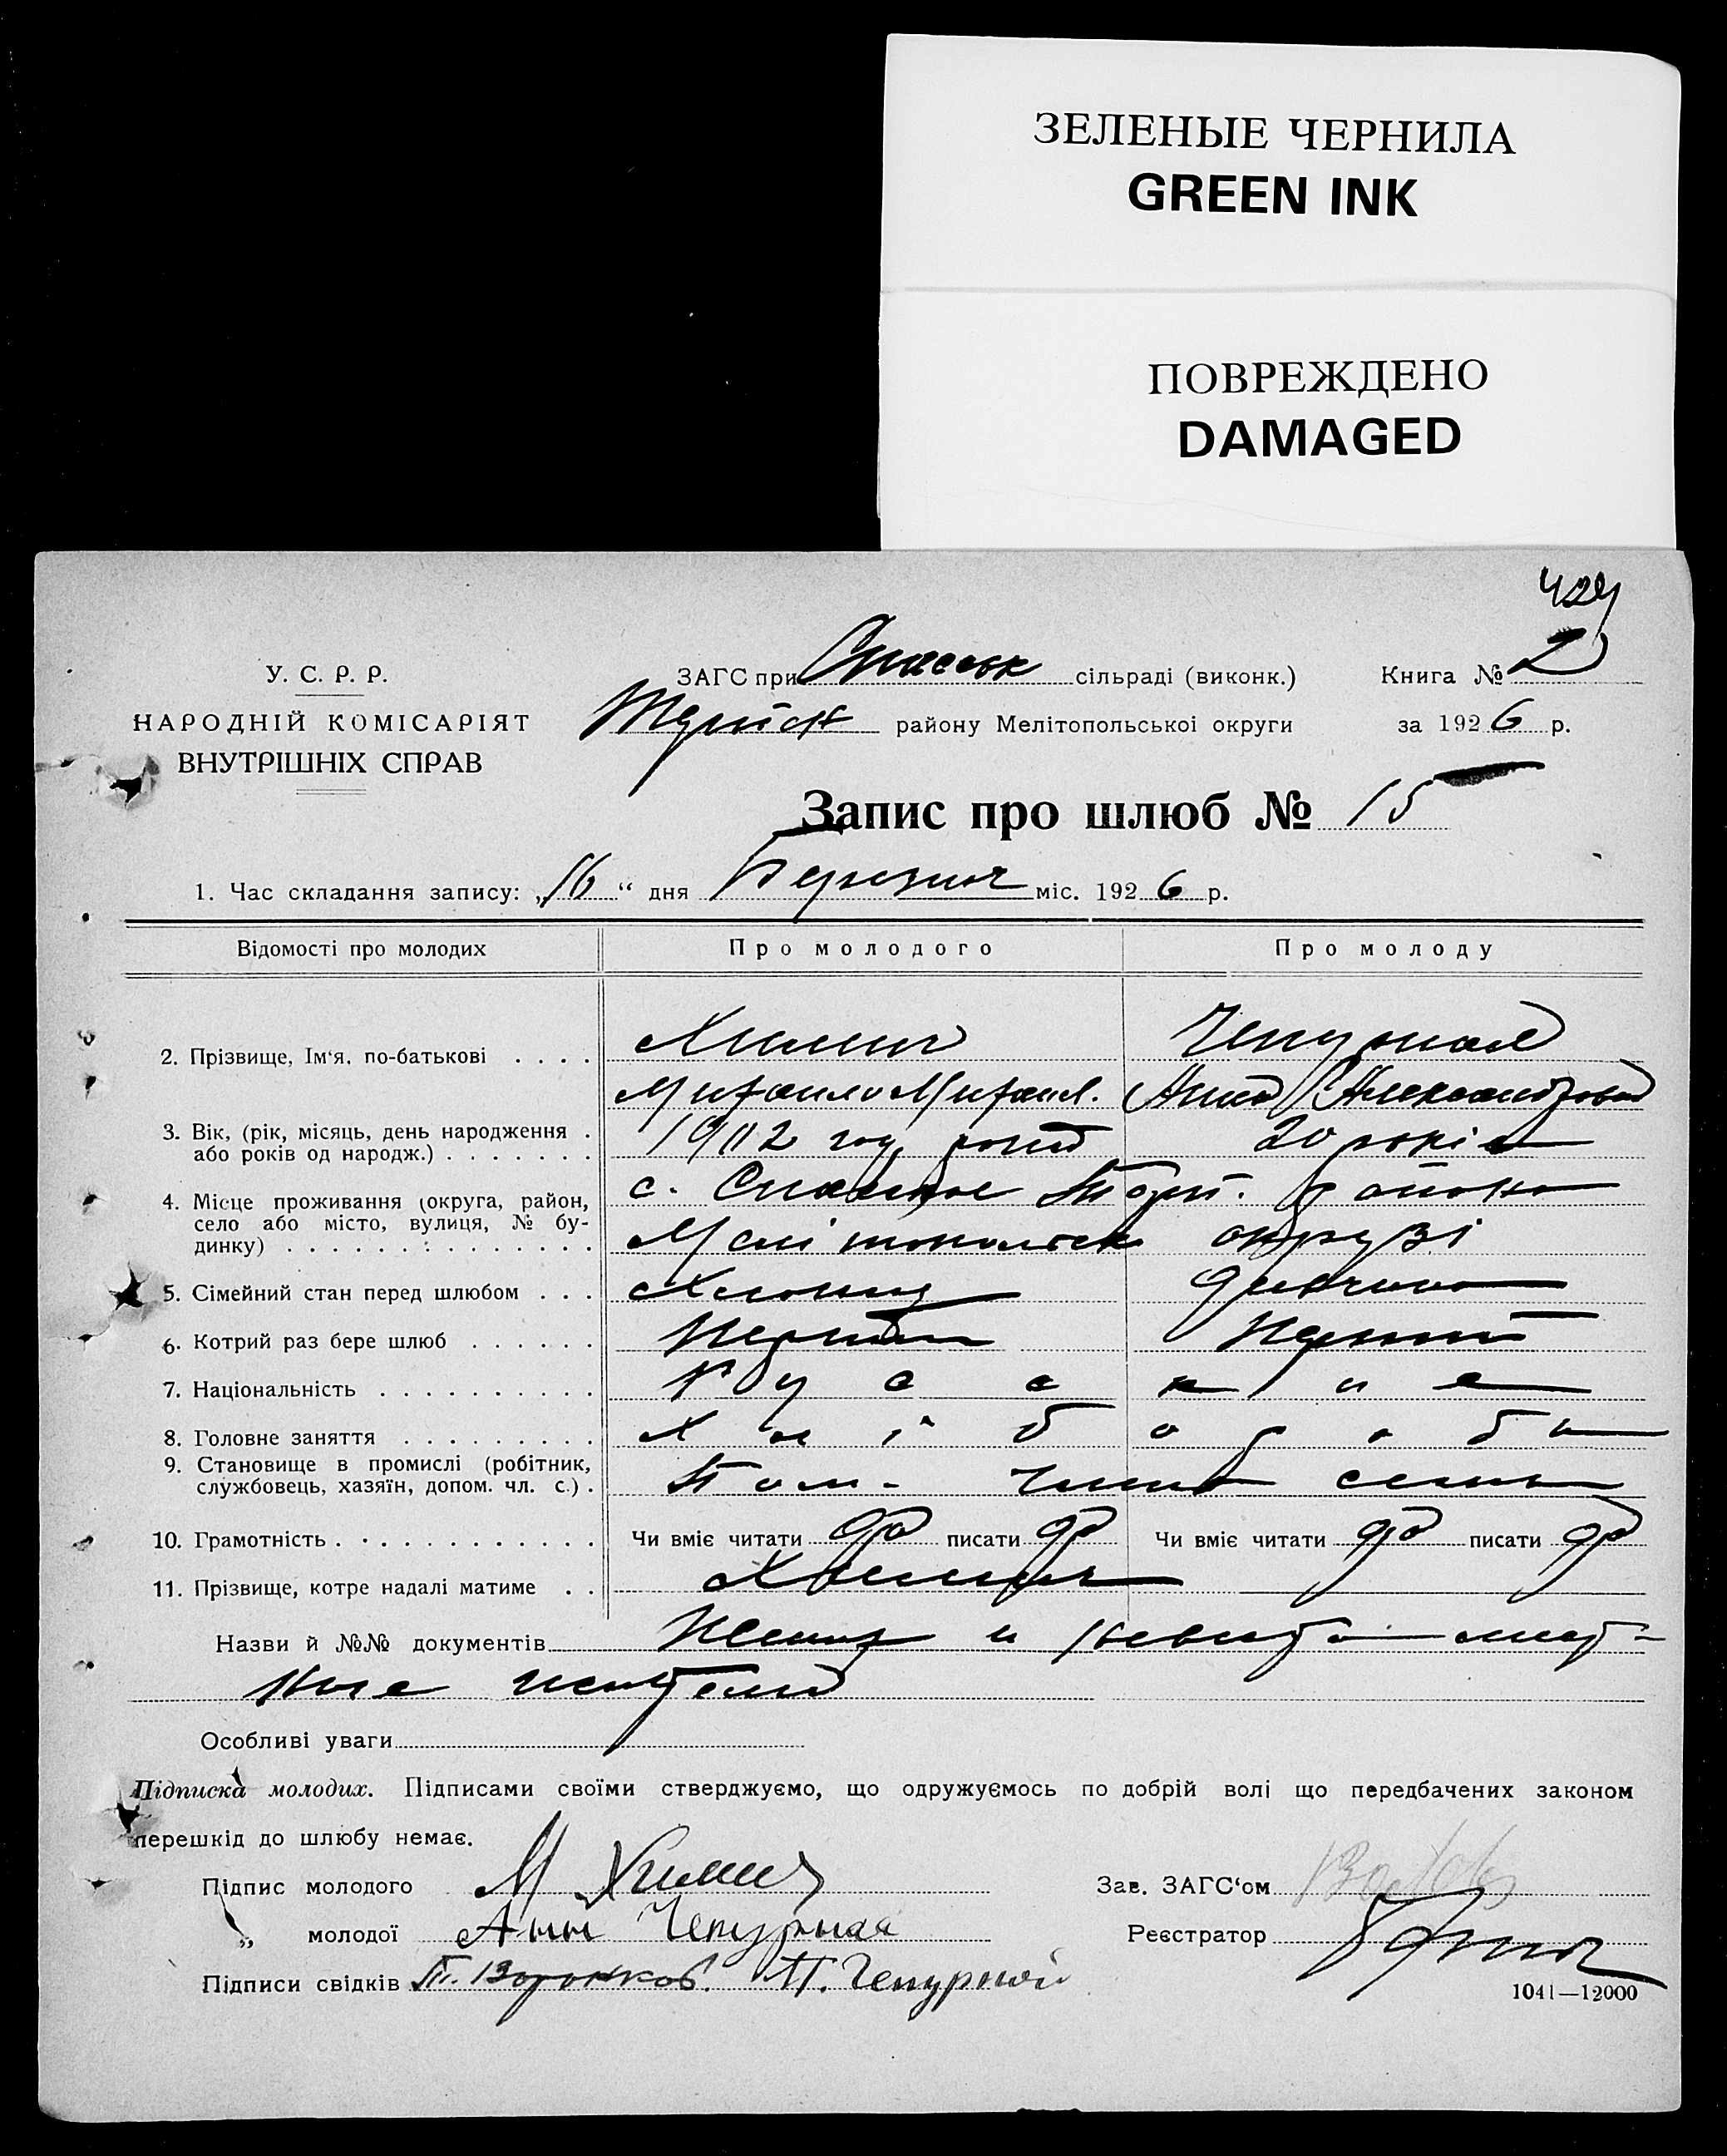 ЗЕЛЕНЫЕ ЧЕРНИЛА
GREEN INK
ПОВРЕЖДЕНО
DAMAGED
424
У. С. Р. Р.
НАРОДНІЙ КОМІСАРІЯТ
ВНУТРІШНІХ СПРАВ
ЗАГС при Спаськ сільраді (виконк.) Книга № 2
району Мелітопольської округи за 1926 р.
Запис про шлюб № 15
1. Час складання запису: „16“ дня Березня міс. 1926 р.
Відомості про молодих Про молодого Про молоду
2. Прізвище, Ім‘я, по-батькові . . . . Химич Чепурная
Михаило Михаил. Анна Александровна
3. Вік, (рік, місяць, день народження . або років од народж.) . . . . . . . 1902 году рожд 20 років
4. Місце проживання (округа, район, село або місто, вулиця, № будинку) . . . . . . . . . . . . . . с. Спаське району
Мелітопольськ окрузі
5. Сімейний стан перед шлюбом . . . Хлопец Дивчина
6. Котрий раз бере шлюб . . . . . . Первый Первый
7. Національність . . . . . . . . . . Русские
8. Головне заняття . . . . . . . . . Хлібороби
9. Становище в промислі (робітник, службовець, хазяїн, допом. чл. с.) . Пом. член семьи
10. Грамотність . . . . . . . . . . . . Чи вміє читати да писати да Чи вміє читати да писати да
11. Прізвище, котре надалі матиме . . Химич
Назви й №№ документів Жених и Невеста
Особливі уваги
Підписка молодих. Підписами своїми стверджуємо, що одружуємось по добрій волі що передбачених законом
перешкід до шлюбу немає.
Підпис молодого М Химич Зав. ЗАГС‘ом
„ молодої Анн Чепурная Реєстратор
Підписи свідків П. Воронков. П. Чепурной
1041—12000